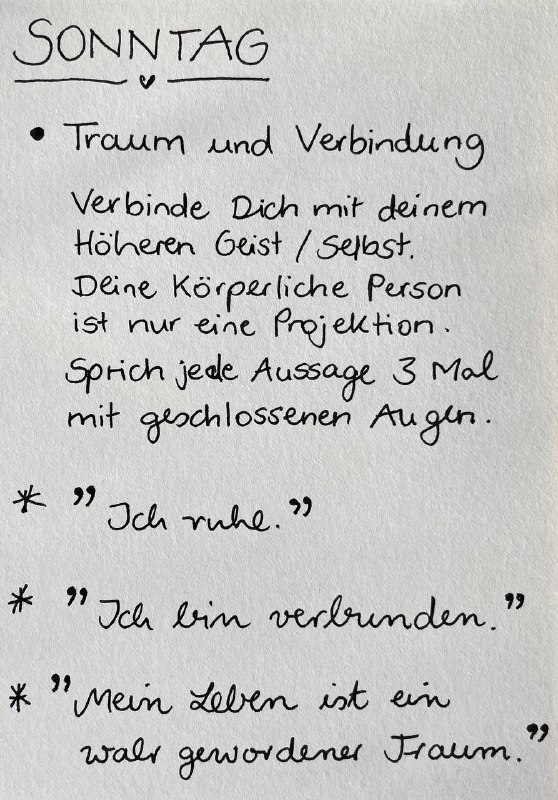 SONNTAG
• Traum und Verbindung
Verbinde Dich mit deinem
Höheren Geist / Selbst.
Deine Körperliche Person
ist nur eine Projektion.
Sprich jede Aussage 3 Mal
mit geschlossenen Augen.
* "Ich ruhe."
* "Ich bin verbunden."
* "Mein Leben ist ein
wahr gewordener Traum."